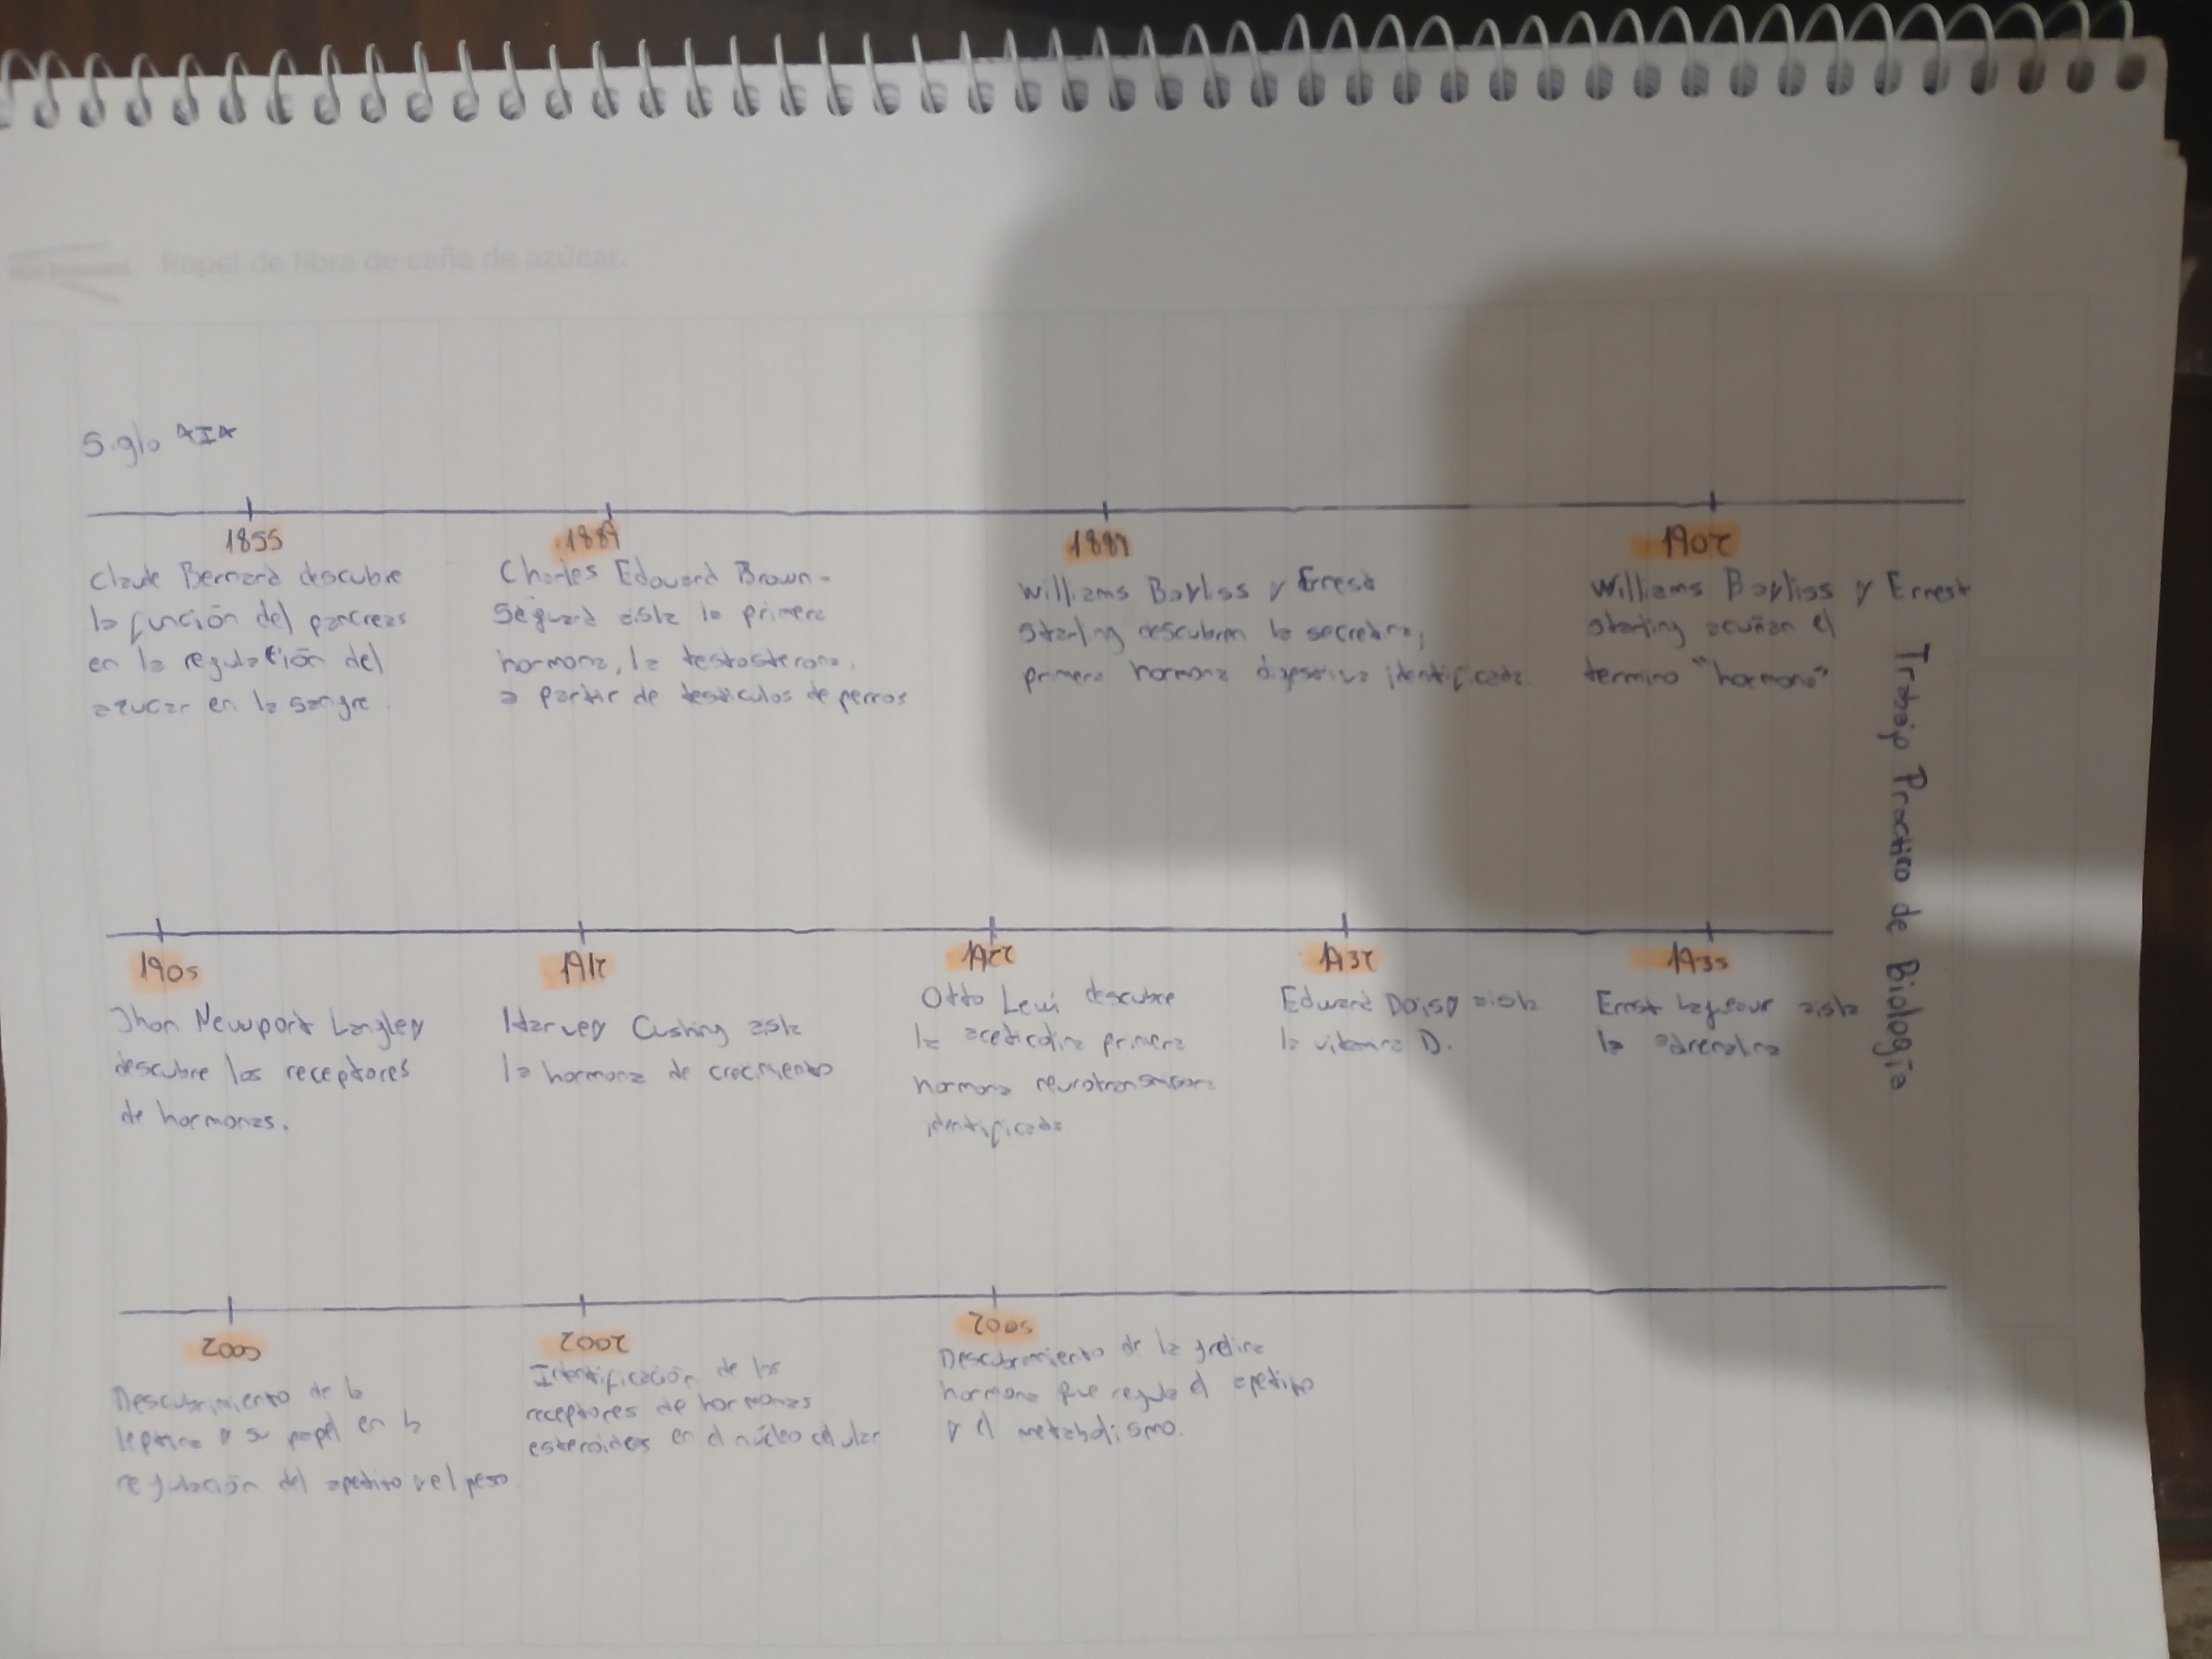 Papel de fibra de caña de azúcar.
Siglo XIX
1855
Claude Bernard descubre
la función del pancreas
en la regulación del
azucar en la sangre.
1889
Charles Edouard Brown-
Seguard aisla la primera
hormona, la testosterona,
a partir de testiculos de perros
1889
Williams Bayliss y Ernest
Starling descubren la secretina,
primera hormona digestiva identificada.
1902
Williams Bayliss y Ernest
Starling acuñan el
termino "hormona"
Trabajo Practico de Biología
1905
Jhon Newport Langley
descubre los receptores
de hormonas.
1912
Harvey Cushing aisla
la hormona de crecimiento
1922
Otto Lewi descubre
la aceticolina primera
hormona neurotransmisora
identificada
1932
Edward Doisy aisla
la vitamina D.
1935
Ernst aisla
la adrenalina
2000
Descubrimiento de la
leptina y su papel en la
regulación del apetito y el peso.
2002
Identificación de los
receptores de hormonas
esteroides en el núcleo celular
2005
Descubrimiento de la grelina
hormona que regula el apetito
y el metabolismo.